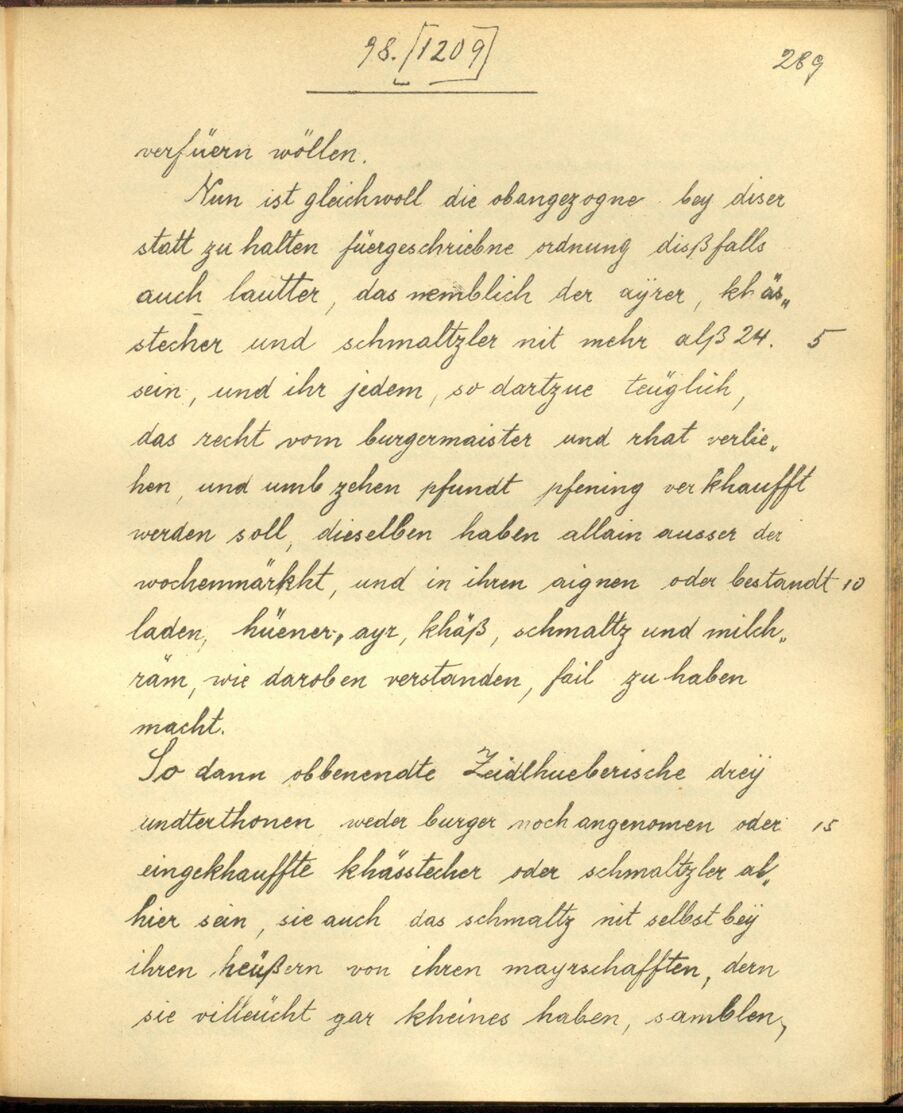 98. [1209]
289
verfüern wöllen.
Nun ist gleichwoll die obangezogne bey diser
statt zu halten füergeschriebne ordnung dißfalls
auch lautter, das nemblich der aÿrer, khäs„
stecher und schmaltzler nit mehr alß 24. 5
sein, und ihr jedem, so dartzue teüglich,
das recht vom burgermaister und rhat verlie„
hen, und umb zehen pfundt pfening verkhaufft
werden soll, dieselben haben allain ausser der
wochenmärkht, und in ihren aignen oder bestandt 10
laden, hüener, ayr, khäß, schmaltz und milch„
räm, wie daroben verstanden, fail zu haben
macht.
So dann obbenendte Zeidlhueberische dreÿ
undterthonen weder burger noch angenomen oder 15
eingekhauffte khässtecher oder schmaltzler al„
hier sein, sie auch das schmaltz nit selbst beÿ
ihren heüßern von ihren mayrschafften, dern
sie villeücht gar kheines haben, samblen,